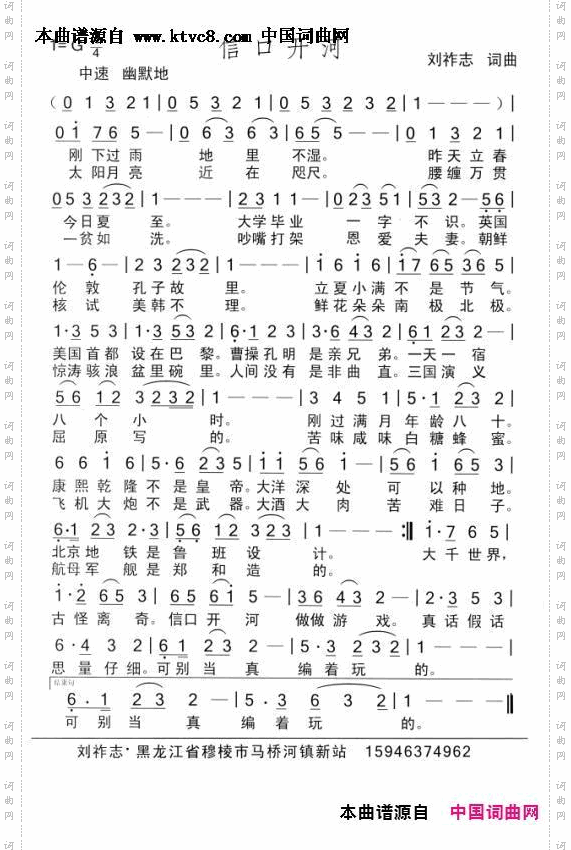 本曲谱源自 www.ktvc8.com 中国词曲网
1=G 4
信口开河
刘祚志 词曲
中速 幽默地
(0 1 3 2 1 | 0 5 3 2 1 | 0 5 3 2 3 2 | 1 — — — )|
0 1 7 6 5 — | 0 6 3 6 3 | 6 5 5 — — | 0 1 3 2 1 |
刚 下过 雨 地 里 不湿。 昨天 立春
太 阳月 亮 近 在 咫尺。 腰缠 万贯
0 5 3 2 3 2 | 1 — — — | 2 3 1 1 — | 0 2 3 5 1 | 5 3 2 — 5 6 |
今日 夏 至。 大学 毕业 一 字 不 识。英国
一贫 如 洗。 吵嘴 打架 恩 爱 夫 妻。朝鲜
1 — 6 — | 2 3 2 3 2 | 1 — — — | 1 6 1 6 | 1 7 6 5 3 6 5 |
伦 敦 孔子 故 里。 立夏小满 不 是 节 气。
核 试 美韩 不 理。 鲜花朵朵 南 极 北 极。
1·3 5 3 | 1·3 5 3 2 | 6·1 2 3 2 | 3·6 4 3 2 | 6 1 2 3 2 — |
美国首都 设在巴 黎。曹操孔明 是亲兄 弟。一天一 宿
惊涛骇浪 盆里碗 里。人间没有 是非曲 直。三国演 义
5 6 1 2 3 2 3 2 | 1 — — — | 3 4 5 1 | 5·1 2 3 2 |
八 个 小 时。 刚过满月 年龄八十。
屈 原 写 的。 苦味咸味 白糖蜂蜜。
6 6 1 6 | 5·6 2 3 5 | 1 1 5 5 — | 5 6 1 6 5 3 |
康熙乾隆 不是皇 帝。大洋深 处 可 以 种 地。
飞机大炮 不是武 器。大酒大 肉 苦 难 日 子。
6·1 2 3 2·3 | 5 6 1 2 3 2 3 | 1 — — — :‖ 1·7 6 5 |
北京地 铁是 鲁 班 设 计。 大千世界,
航母军 舰是 郑 和 造 的。
1·2 6 5 3 | 6 5 6 5 1 — | 3 6 4 3 2 — | 2·3 5 3 |
古怪离 奇。信口开 河 做做游 戏。 真话假话
6·4 3 2 | 6 1 2 3 2 — | 5·3 2 3 2 | 1 — — — |
思量仔细。可别当 真 编着玩 的。
结束句
6·1 2 3 2 — | 5·3 6 3 2 | 1 — — — ‖
可别当 真 编着玩 的。
刘祚志·黑龙江省穆棱市马桥河镇新站 15946374962
本曲谱源自 中国词曲网